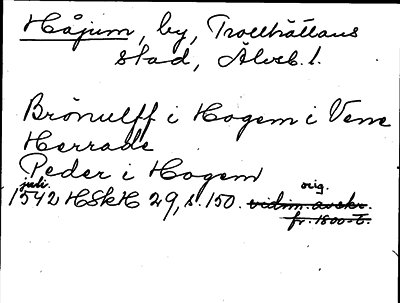 Håjum, by, Trollhättans
stad, Älvsb. l.
Brönulff i Hogem i Vene
Herrade
Peder i Hogem
juli orig.
1542 HSkH 29, s. 150. vidim. avskr.
fr. 1800-t.